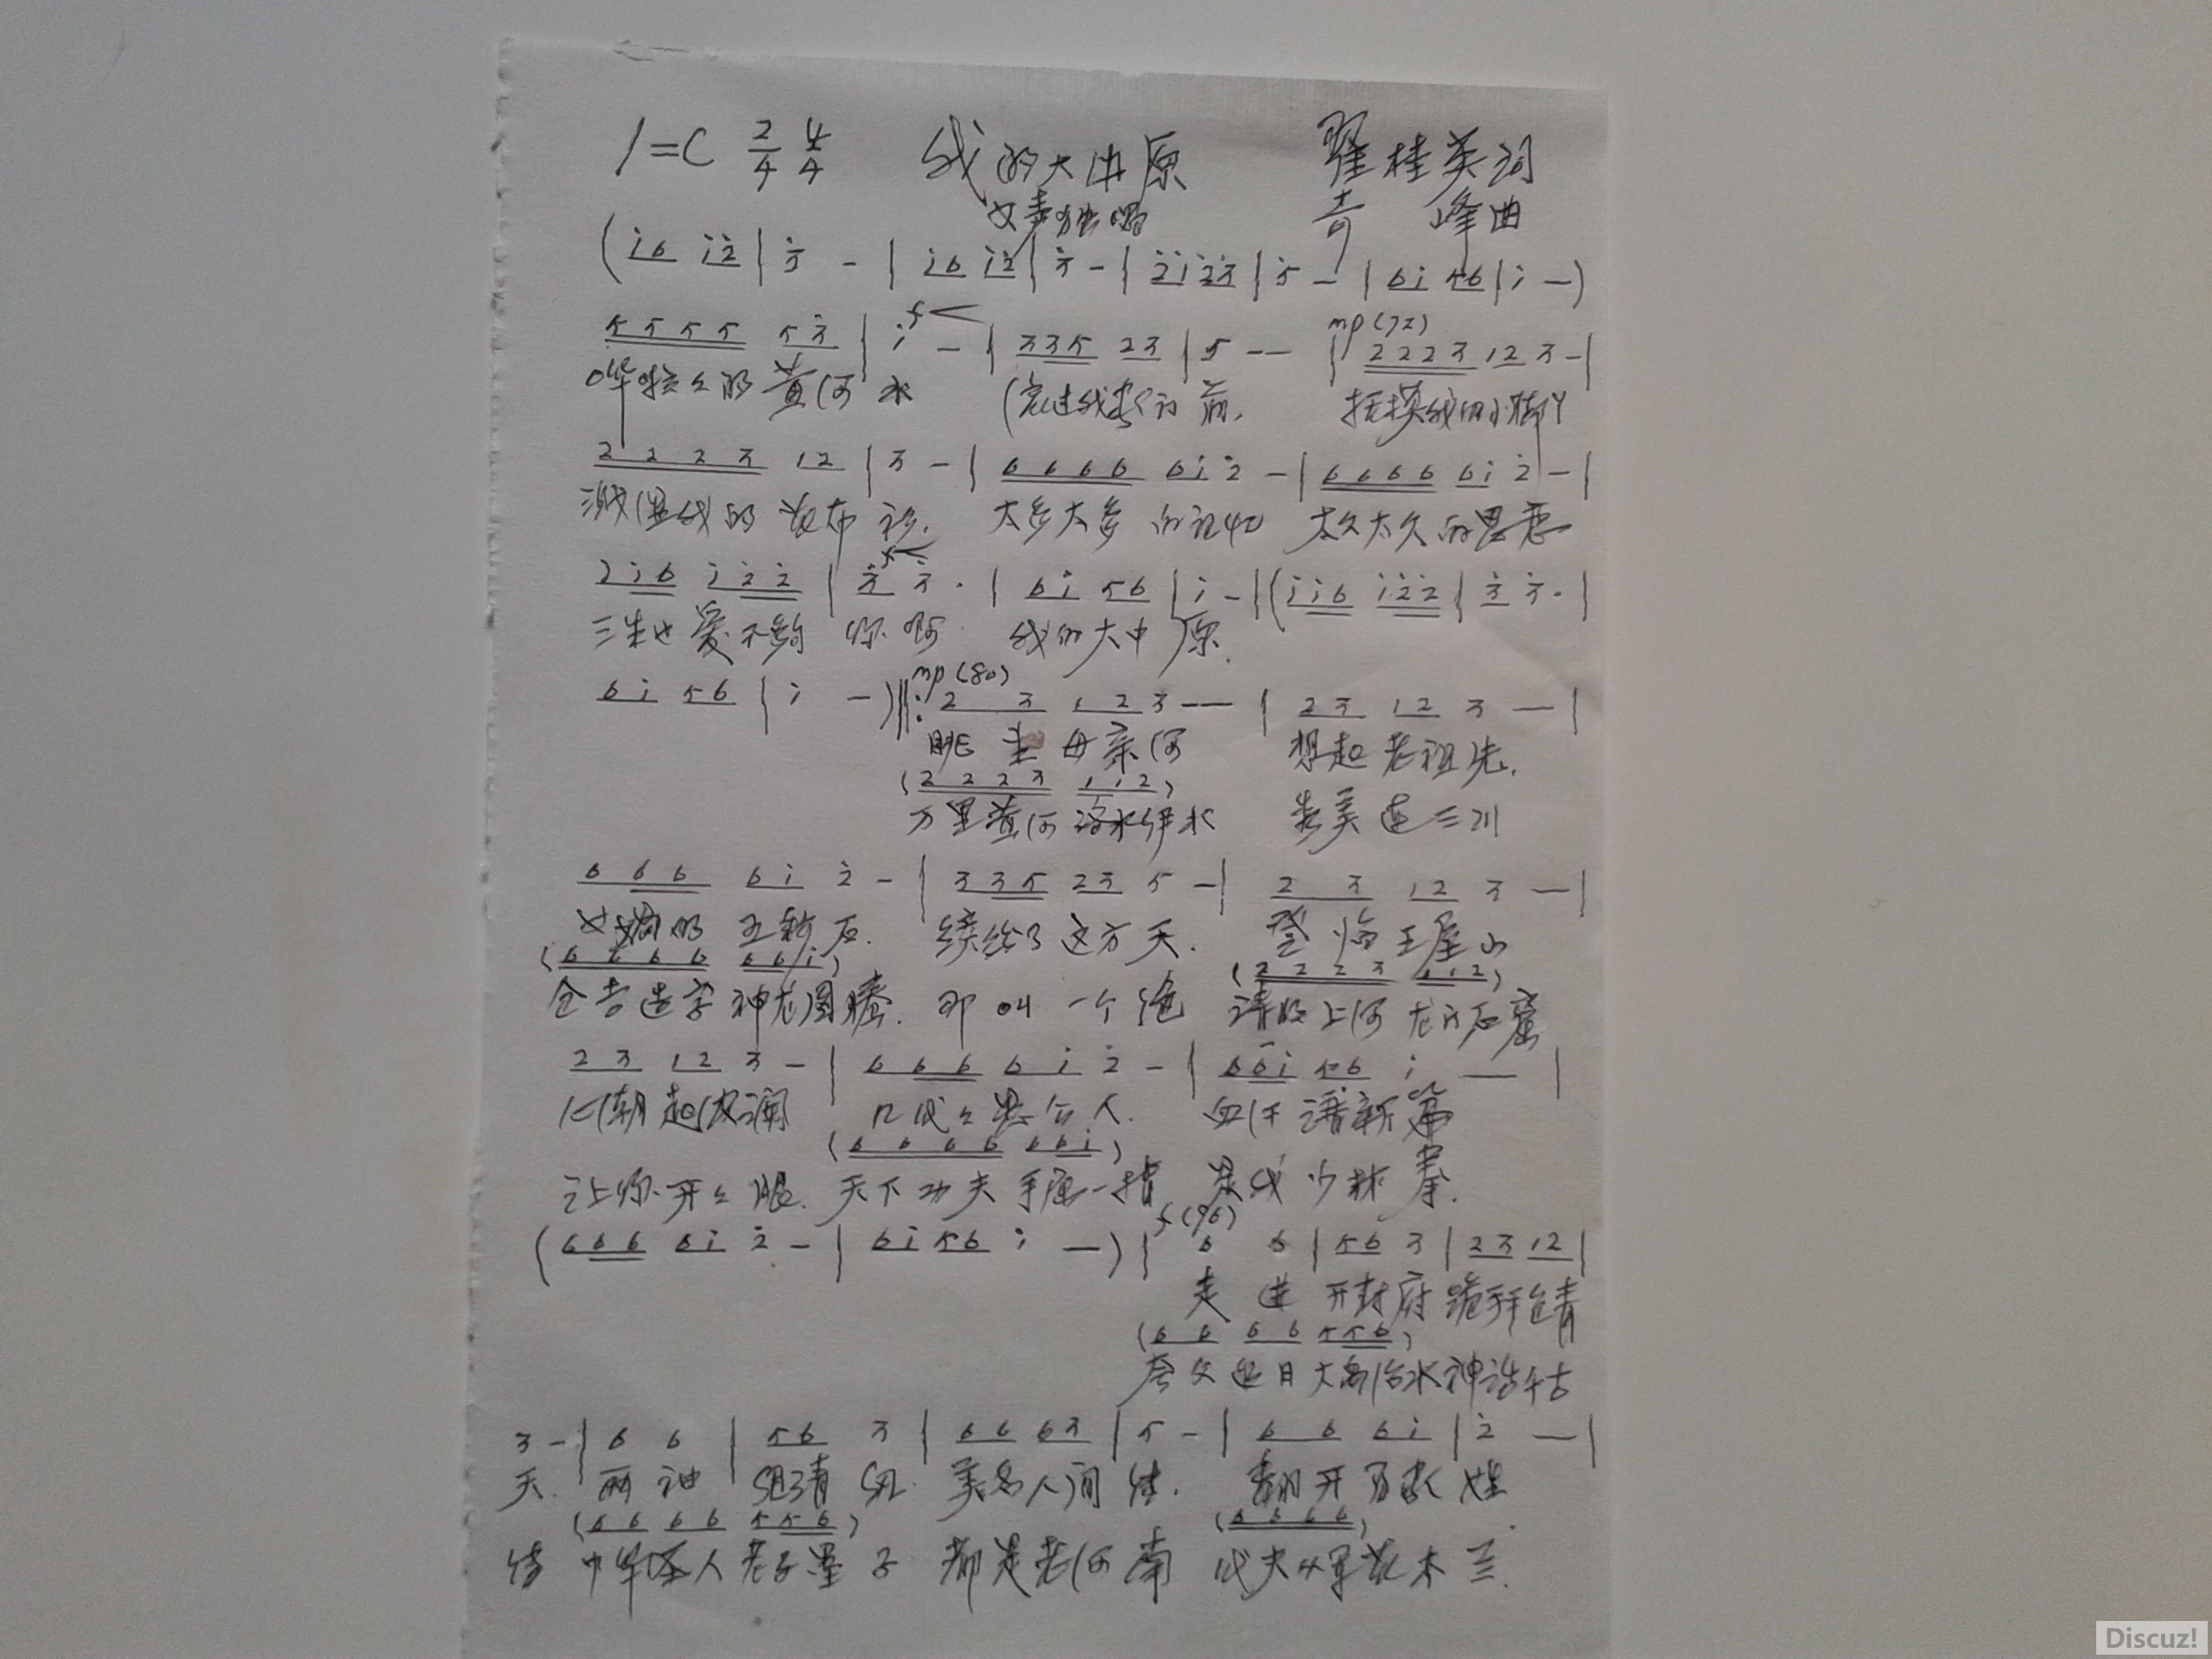 1=C 2/4 4/4 我的大中原 翟桂英词
女声独唱 奇峰曲
(i6 i2 | 3 - | i6 i2 | 3 - | 2i23 | 5 - | 6i 56 | i -)
5555 53 | i - | 335 23 | 5 -- | 2223 12 3 - |
f mp(72)
哗啦々的黄河水 流过我家门前, 抚摸我的小脚丫
2223 12 | 3 - | 6666 6i 2 - | 6666 6i 2 - |
溅湿我的花布衫. 太多太多的记忆 太久太久的思恋
f
2i6 i22 | 3 3 · | 6i 56 | i - | (ii6 i22 | 3 3 · |
三生也爱不够你啊 我的大中原.
mp(80)
6i 56 | i -) ‖: 2 3 12 3 -- | 23 12 3 - |
眺望母亲河 想起老祖先.
(2223 112)
万里黄河洛水伊水 连三川
666 6i 2 - | 335 23 5 - | 2 3 12 3 - |
女娲的五彩石. 续给了这方天. 登临王屋山
(6666 66i) (2223 112)
仓吉造字神龙图腾. 那叫一个绝 清明上河龙门石窟
23 12 3 - | 666 6i 2 - | 66i 56 i - |
心潮起波澜 人. 血汗谱新篇
(6666 66i)
让你开々眼. 天下功夫手 一指 是我少林拳.
f(96)
(666 6i 2 - | 6i 56 i -) | 6 6 | 56 3 | 23 12 |
走进开封府 跪拜包青
(66 66 556)
夸父追日大禹治水神话千古
3 - | 6 6 | 56 3 | 66 63 | 5 - | 66 6i | 2 - |
天. 美名人间传. 翻开百家姓
(66 66 556) (6666)
传 中华圣人老子墨子 都是老河南 代父从军花木兰.
Discuz!